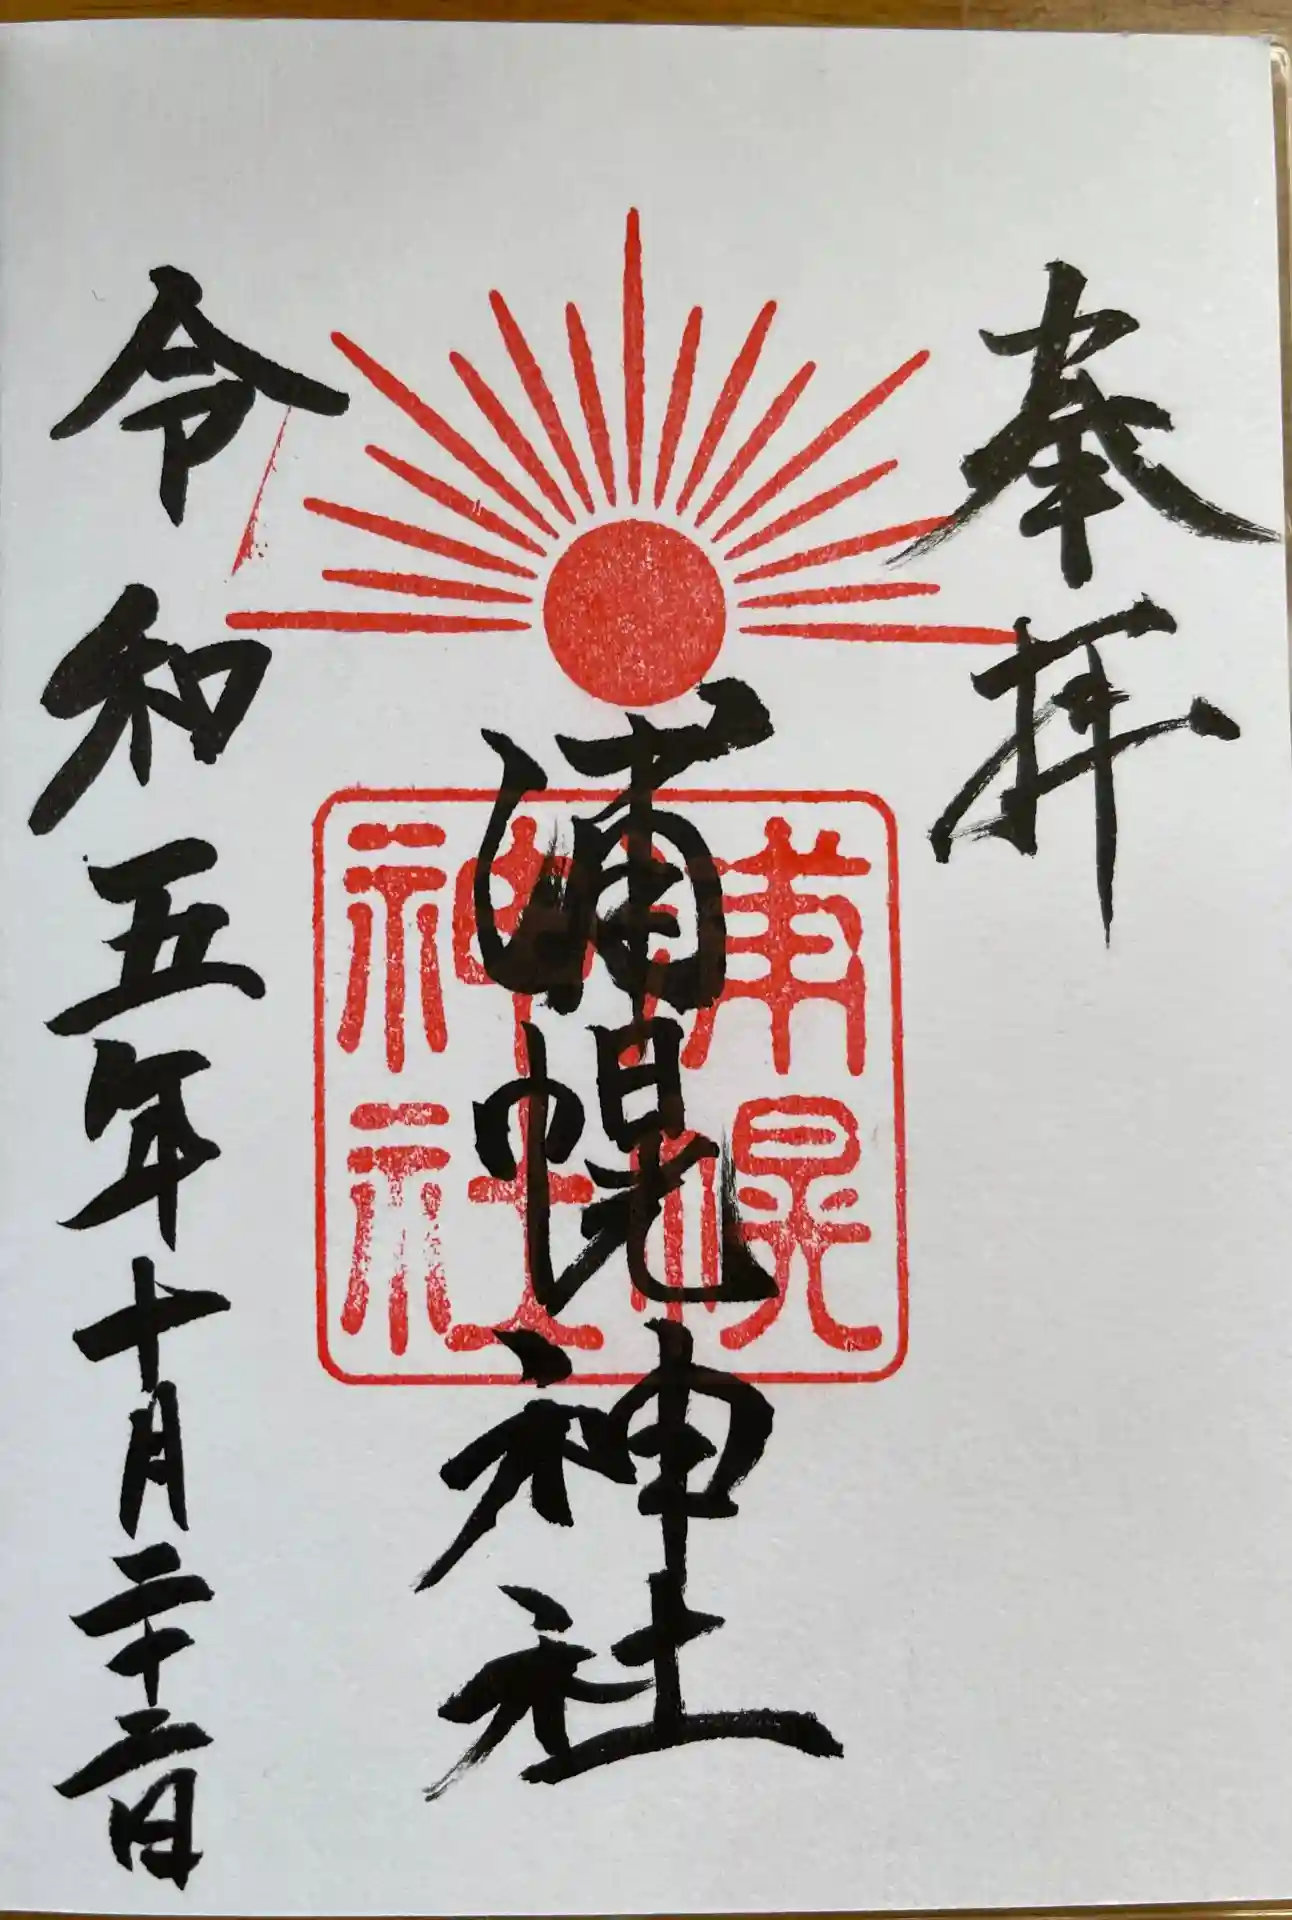 奉拝
浦幌神社
浦幌
神社
令和五年十月二十二日